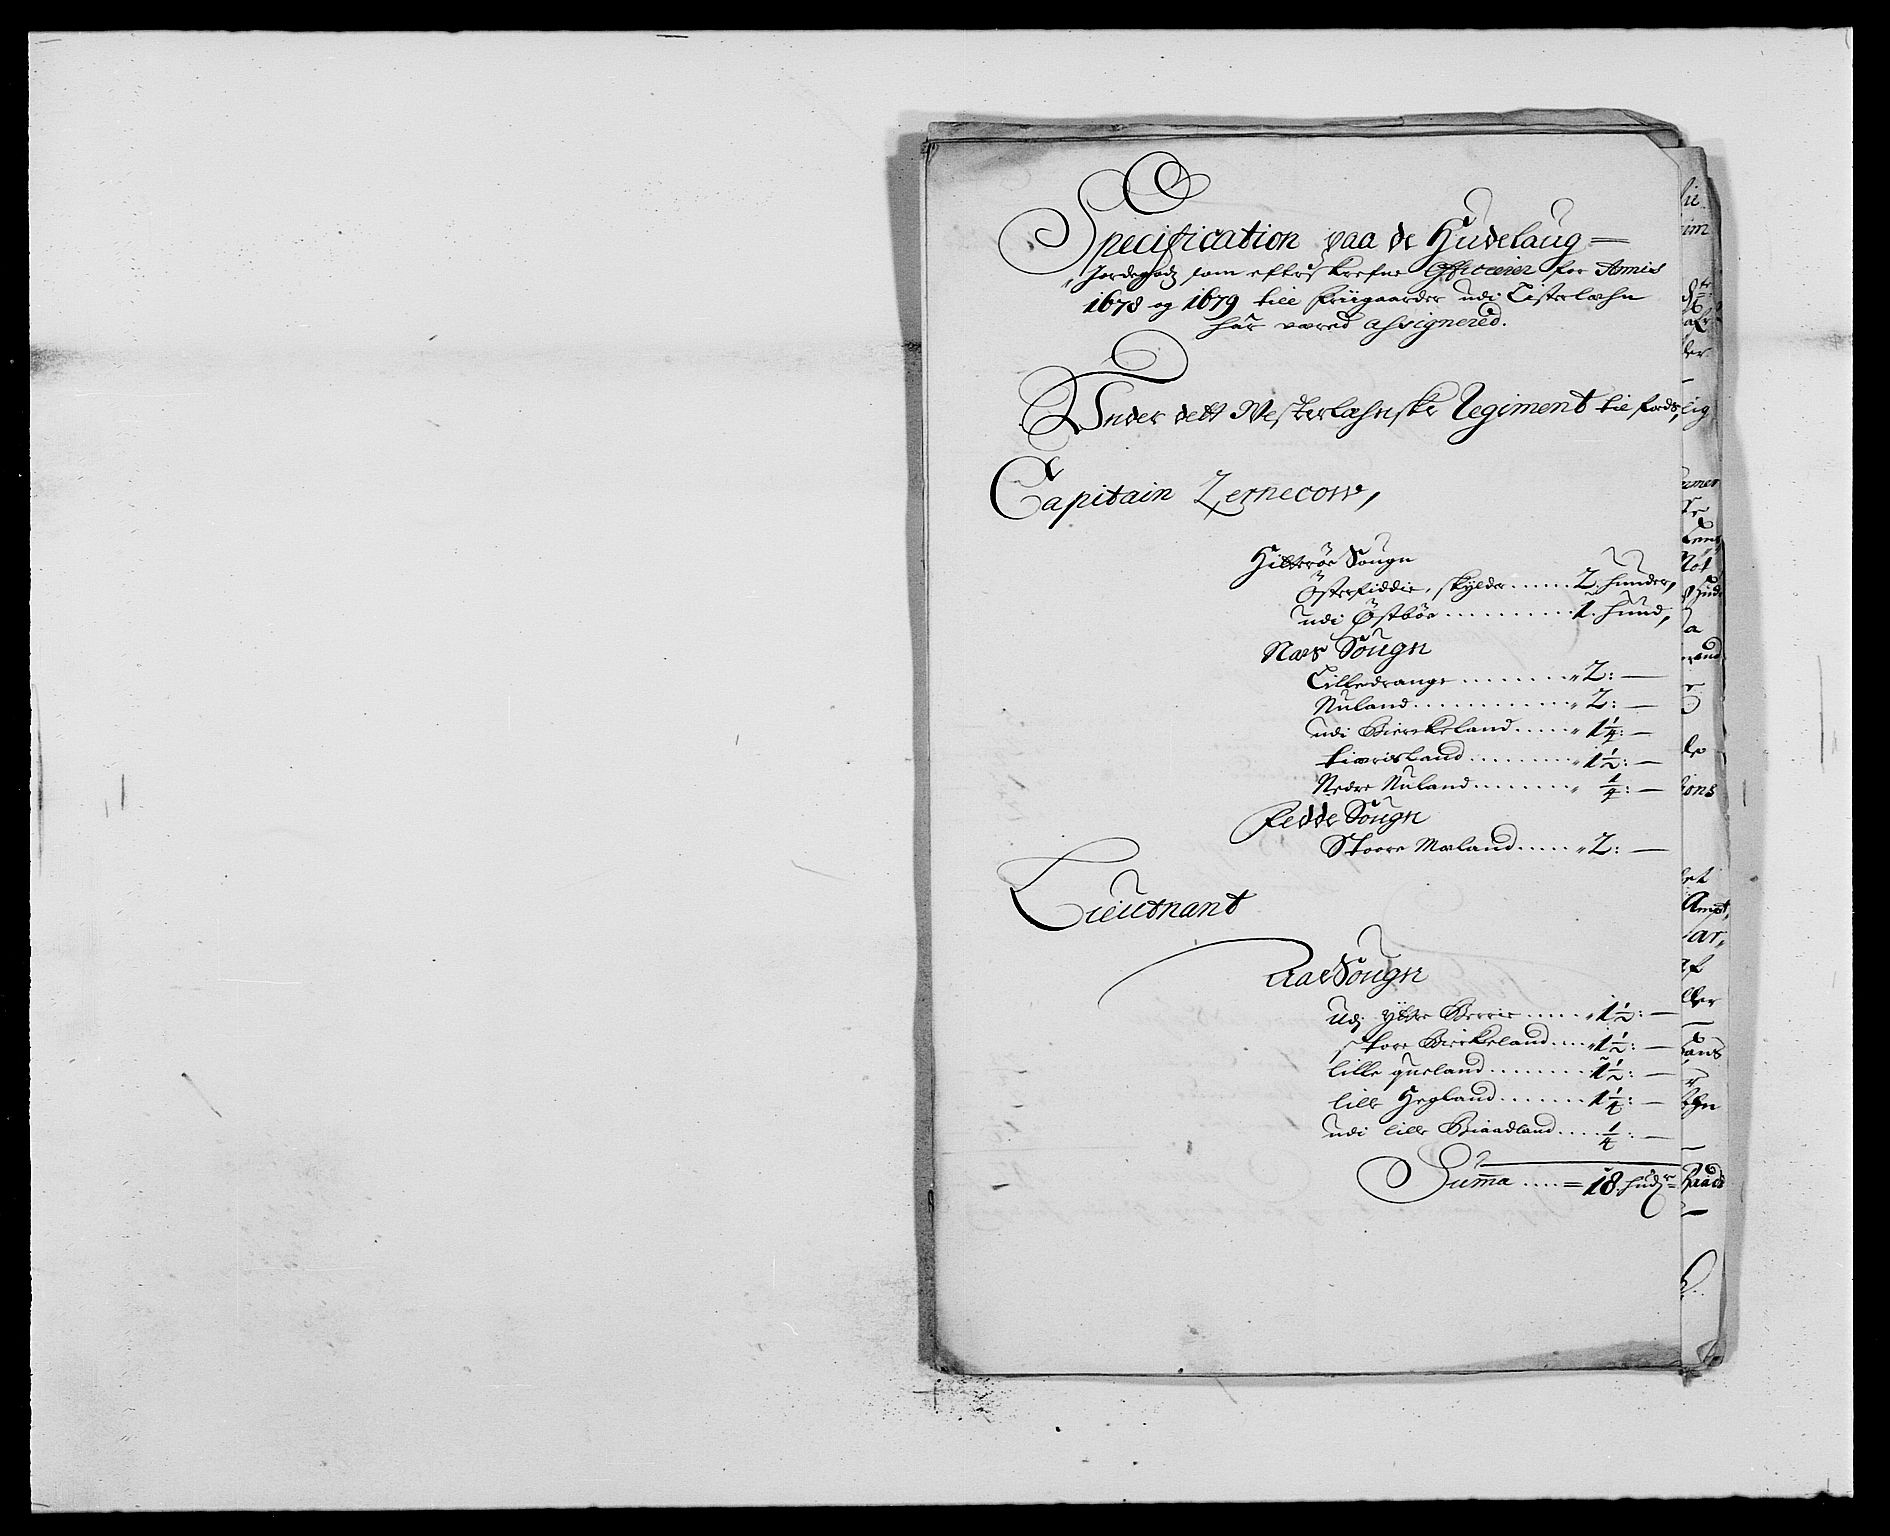 Specification paa de Hudelaug
Jordegodz som efterskrefne Officerer for Annis
1678 og 1679 till friigaarder udi Listerlæhn
har wæred Assignered.
Under dett Westerlæhnske Regiment till fods,
Capitain Zernecow,
Hitterøe Sougn
Østerfiddie, skylder ...... 2. hunder,
udi Østbøe ........... 1. hund,
Næs Sougn
Lilledrange ......... 2: —
Nuland ............. 2: —
udi Bierckeland ...... 1¼: —
.......... 1½: —
Nedre Nuland ......... ¼: —
Fedde Sougn
Stoere Mæland ...... 2: —
Lieutnant
Aae Sougn
Udj ytre Berrie ...... 1½: —
store Bierkeland .... 1½: —
lille qveland ......... 1½: —
lille Hegland ........ 1¼: —
udi lille Biaadland .... ¼: —
Summa .... = 18. hudr